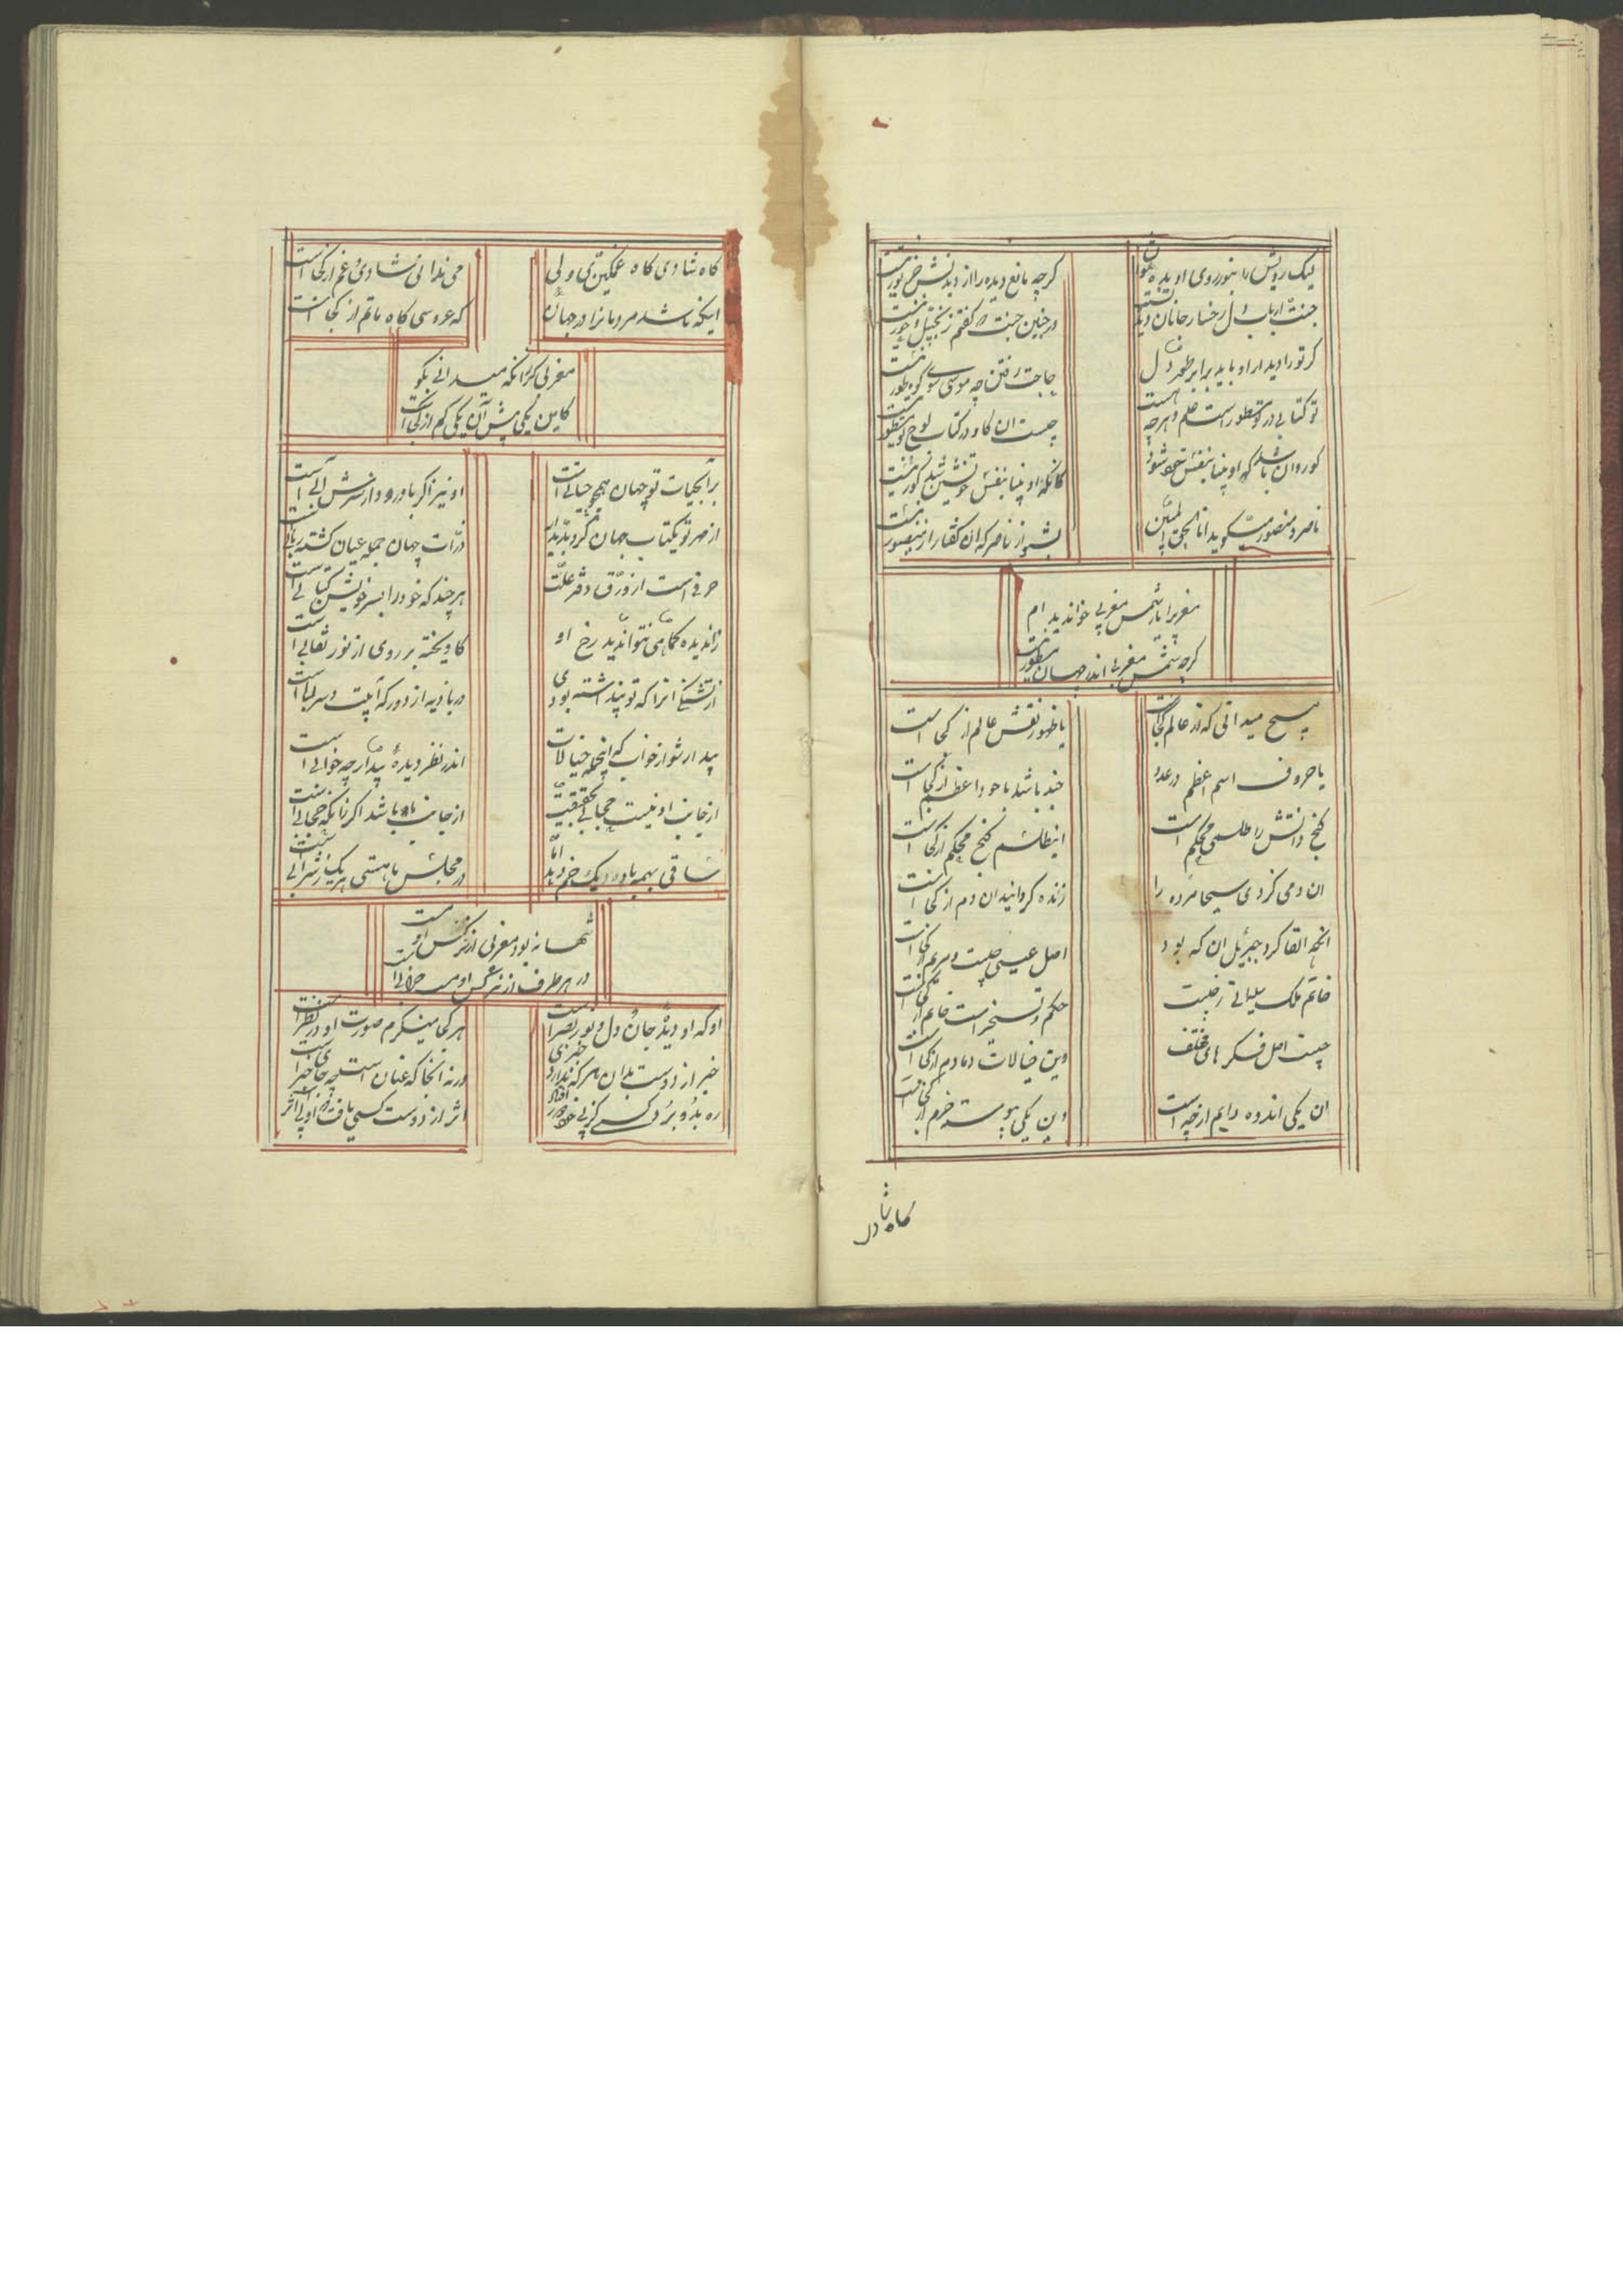 لیک رویش را بنور روی او دیدن توان
کرچه مانع دیده را از دیدنش جز نور نیست
جنت ارباب دل رخسار جانان دیدنست
در چنین جنت که گفتم زنجبیل و حور نیست
کر تو را دیدار او باید برا بر طور دل
حاجت رفتن چه موسی سوی کوه طور نیست
تو کتابی در تو مسطورست علم و هرچه هست
چیست ان کاو در کتاب لوح تو مسطور نیست
کور دان باشد که او بینا بنفس خود شود
کانکه او بینا بنفس خویشتن شد کور نیست
ناصر و منصور میگوید انا الحق المبین
بشنو از ناصر که ان گفتار از منصور نیست
مغربی را یار شمس مغربی خواندیدم ام
کرچه شمس مغربی اندر جهان مشهور نیست
هیچ میدانی که از عالم کجاست
یا ظهور نقش عالم از کجاست
یا حروف اسم اعظم در عدد
چند باشد یا خود اعظم از کجاست
کنج دانش را طلسمی محکم است
این طلسم کنج محکم از کجاست
ان دمی کز وی مسیحا مرده را
زنده کردانید ان دم از کجاست
انچه القا کرد جبرئیل ان که بود
اصل عیسی چیست و مریم از کجاست
خاتم ملک سلیمانی ز چیست
حکم و تسخیر است خاتم از کجاست
چیست اصل فکرهای مختلف
وین خیالات دمادم از کجاست
ان یکی اندوه دایم از چه است
وین یکی پیوسته خرم از کجاست
کاه شادی
کاه شادی کاه غمکینی ولی
می ندانی شادی و غم از کجاست
اینکه باشد مردمانرا در جهان
که عروسی کاه ماتم از کجاست
مغربی کر زانکه میدانی بکو
کاین یکی بیش آن یکی کم از کجاست
بر آبحیات تو جهان همچو حبابی است
او نیز اکر باد رود از سرش آبی است
از مهر تو یکتاب جهان کرد پدیدار
ذرات جهان جمله عیان کشته ز تابی است
حرفی است از ورق دفتر علمت
هر چند که خود را بسر خویش کتابی است
نادیده کماهی نتواندید رخ او
کاویخته بر روی از نور نقابی است
از تشنکی انرا که تو پنداشته بودی
در بادیه از دور که آبیست و سرابی است
بیدار شو از خواب که اینجمله خیالات
اندر نظر دیدهٔ بیدار چه خوابی است
از جانب او نیست حجابی بحقیقت
از جانب ما باشد اکر زانکه حجابی است
ساقی بهمه باده ز یک خم دهد اما
در مجلس ما هستی هر یک ز شرابی است
تنها نه بود مغربی از نرکس او مست
در هر طرف از نرکس او مست خرابی است
او که او دیدهٔ جان و دل و نور بصر است
هر کجا مینکرم صورت او در نظر است
خبر از دوست بدان هر که ندارد خبری
ورنه انجا که عیان است چه جای خبر است
ره بدو برد کسی کز پی خود دور افتاد
اثر از دوست کسی یافت که او بی اثر است